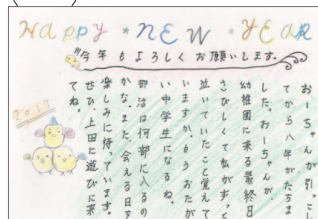 Happy *NEW* YEAR
今年もよろしくお願いします。
2017
おーちゃんが引っこし
てから八年がたちま
した。おーちゃんが
幼稚園に来る最終日
さびしくて私がずっと
泣いていたこと覚えて
いますか。もうおたがい
中学生になるね。
部活は何部に入るの
かな。また、会える日を
楽しみに待っています。
ぜひ、上田に遊びに来
てね。